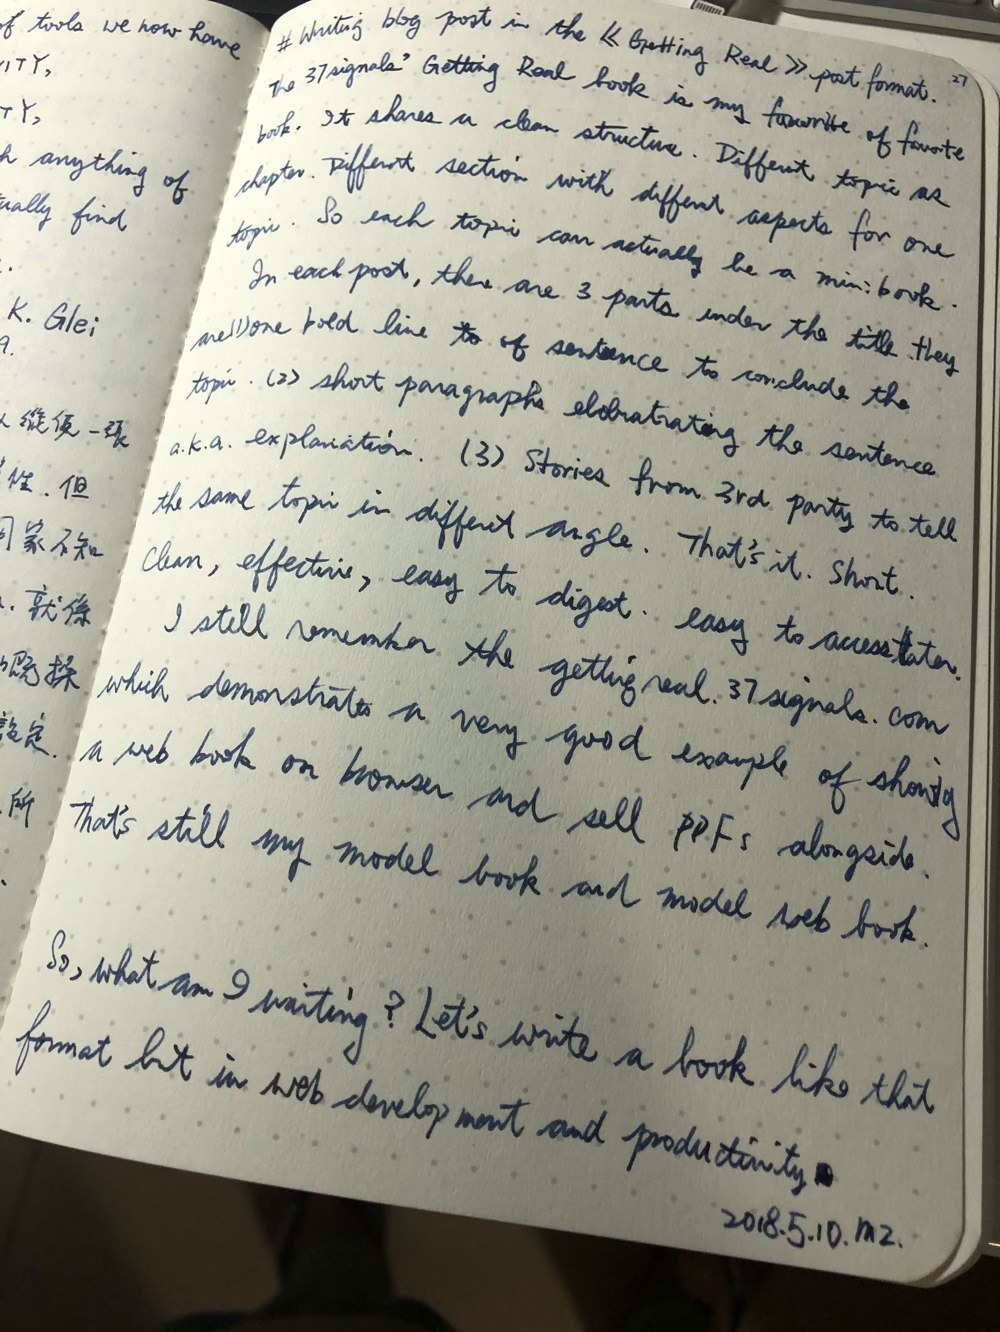 of tools we now have
ITY,
TY,
h anything of
ually find
K. Glei
9.
從一張
性. 但
家不知
. 就係
設定.
所
27
# Writing blog post in the 《Getting Real》 post format.
The 37signals' Getting Real book is my favourite of favorite
book. It shares a clean structure. Different topic as
chapter. Different section with different aspects for one
topic. So each topic can actually be a mini book.
In each post, there are 3 parts under the title. they
are (1) one bold line to of sentence to conclude the
topic. (2) short paragraphs elobratrating the sentence
a.k.a. explaniation. (3) Stories from 3rd party to tell
the same topic in different angle. That's it. Short.
Clean, effective, easy to digest. easy to access later.
I still remember the gettingreal.37signals.com
which demonstrates a very good example of showing
a web book on browser and sell PDFs alongside.
That's still my model book and model web book.
So, what am I waiting? Let's write a book like that
format but in web development and productivity.
2018.5.10. MZ.